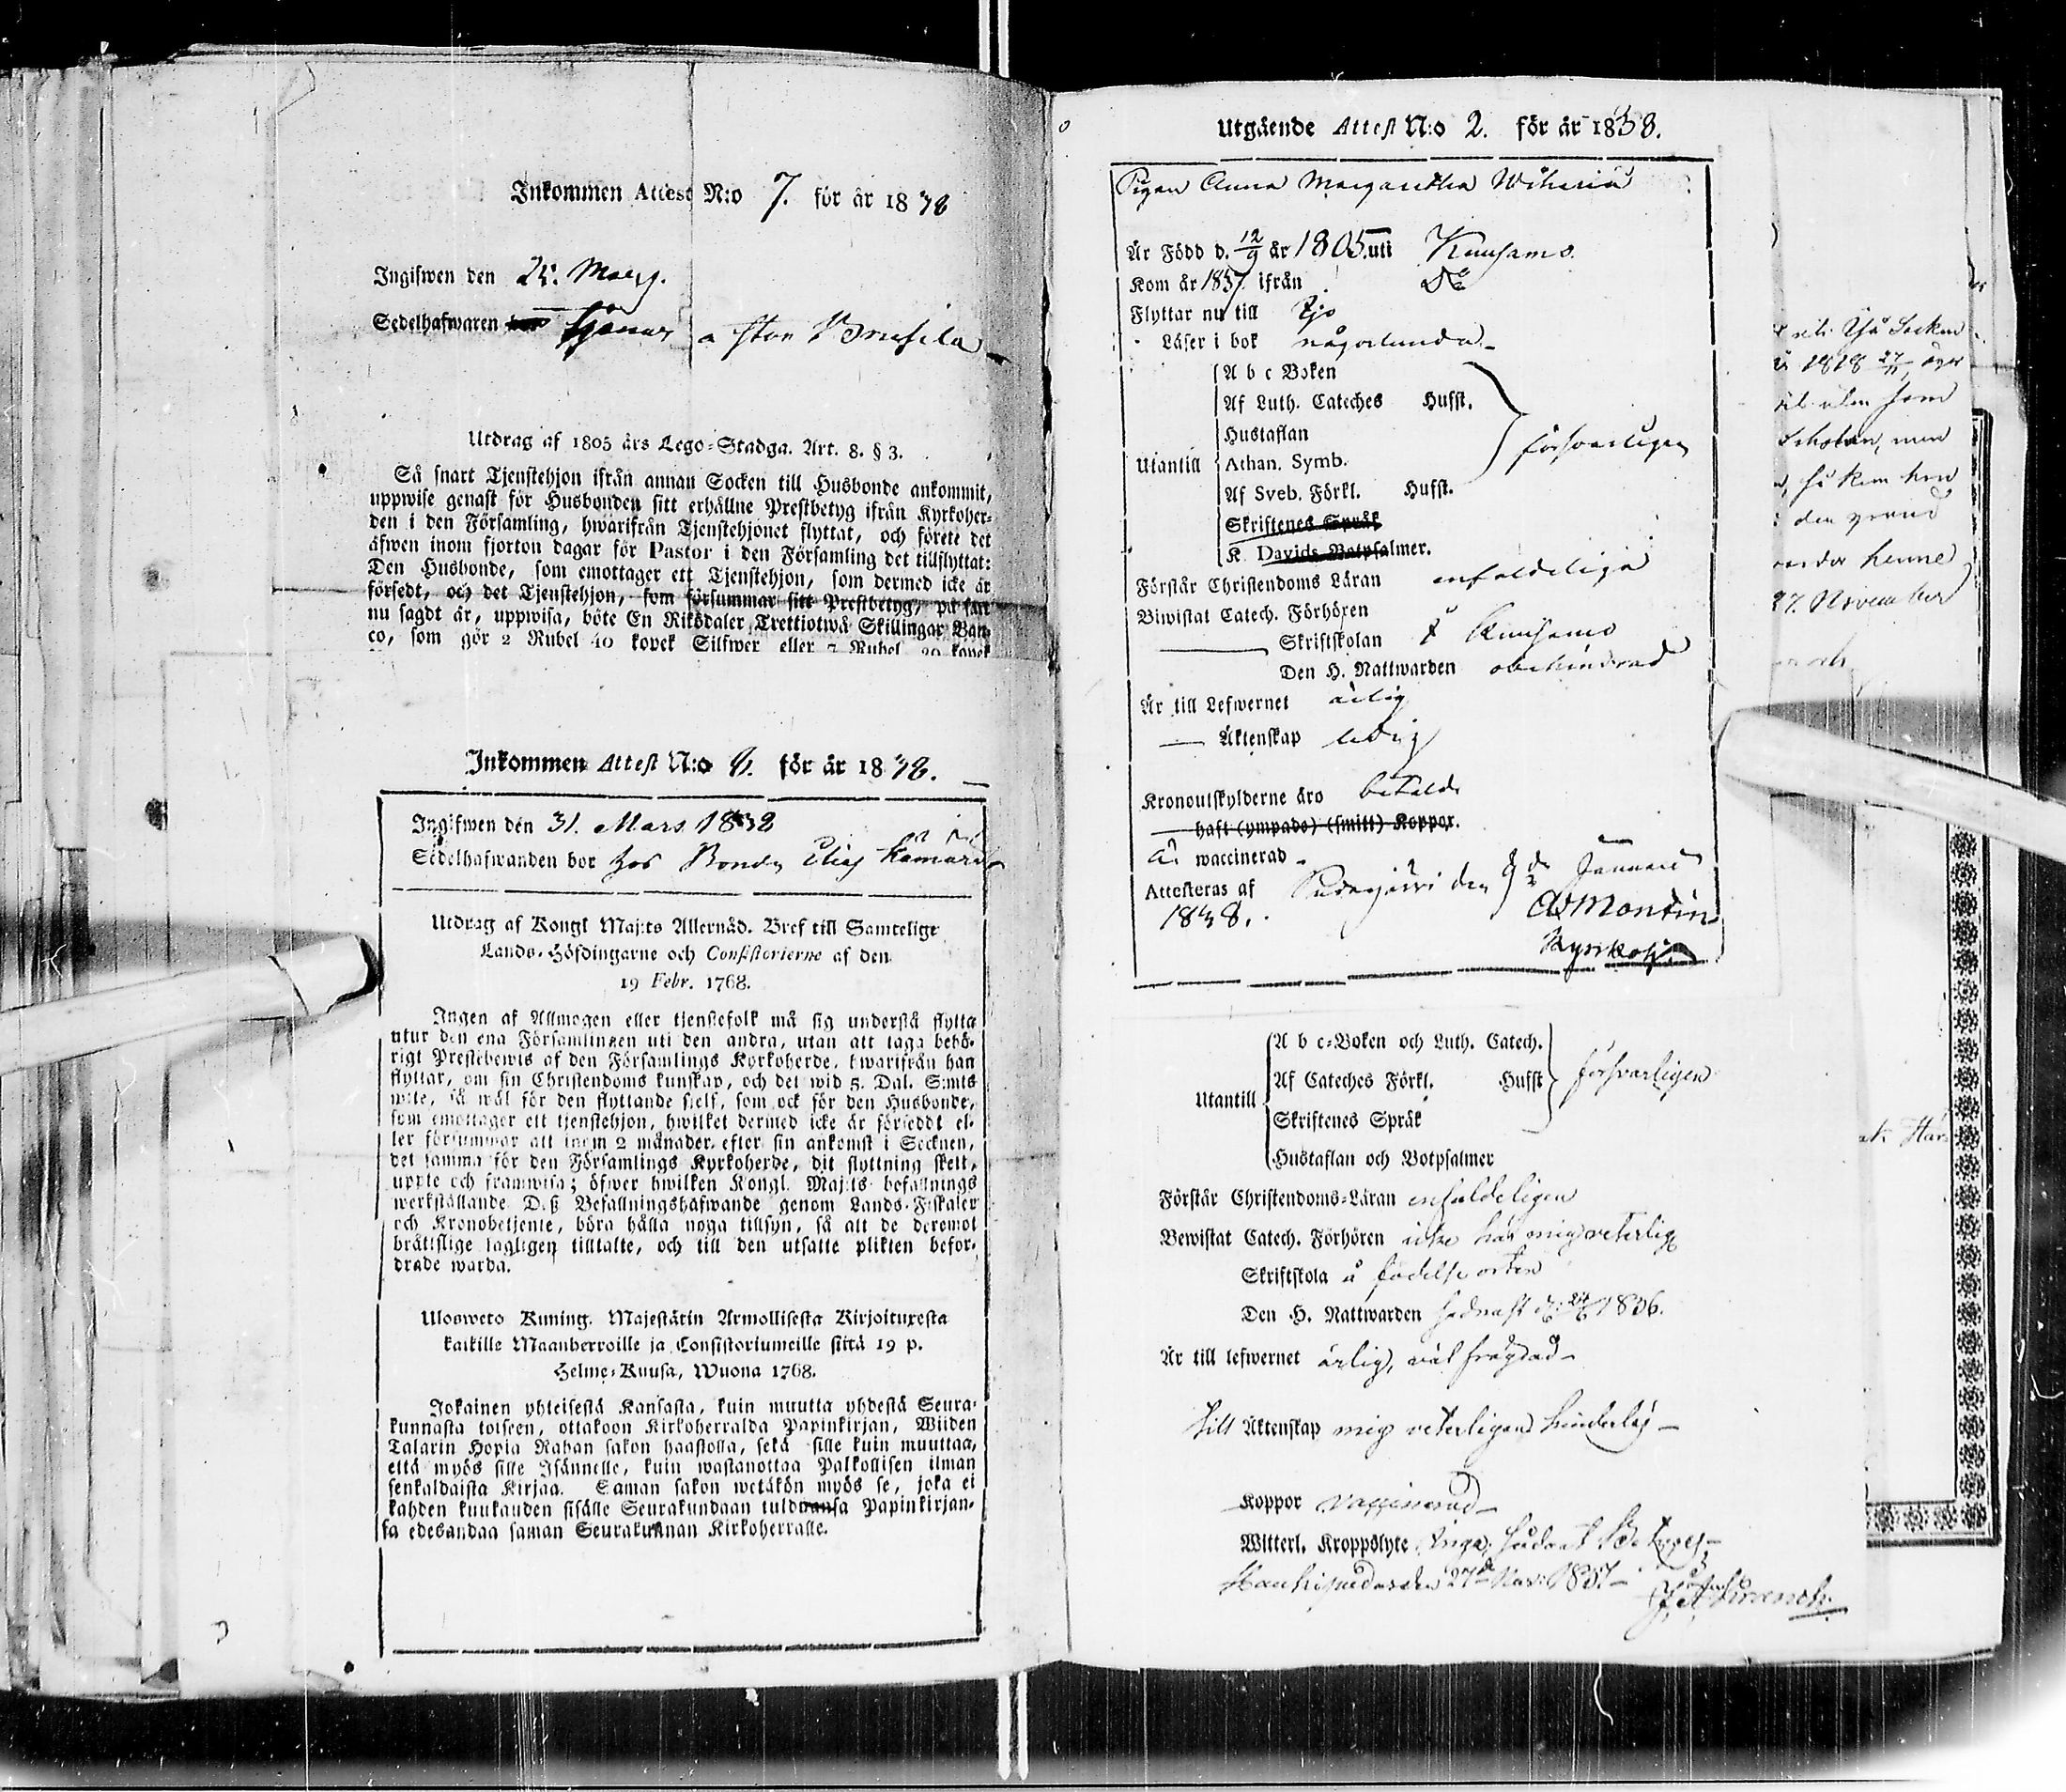 Inkommen Attest N:o 7. för år 1838
Ingifwen den 25. Mars.
Sedelhafwaren tjenar a stor
Utdrag af 1805 års Lego-Stadga. Art. 8. § 3.
Så snart Tjenstehjon ifrån annan Socken till Husbonde ankommit,
uppwise genast för Husbonden sitt erhållne Prestbetyg ifrån Kyrkoher-
den i den Församling, hwarifrån Tjenstehjonet flyttat, och förete det
äfwen inom fjorton dagar för Pastor i den Församling det tillflyttat:
Den Husbonde, som emottager ett Tjenstehjon, som dermed icke är
försedt, och det Tjenstehjon, som försummar sitt Prestbetyg, på sätt
nu sagdt är, uppwisa, böte En Riksdaler Trettiotwå Skillingar Ban-
co, som gör 2 Rubel 40 kopek Silfwer eller 7 Rubel 20 kopek
Inkommen Attest N:o 8. för år 1838.
Ingifwen den 31. Mars 1838
Sedelhafwanden bor hos Bonden Elias
Utdrag af Kongl Maj:ts Allernåd. Bref till Samtelige
Lands-Höfdingarne och Consistorierne af den
19 Febr. 1768.
Ingen af Allmogen eller tjenstefolk må sig understå flytta
utur den ena Församlingen uti den andra, utan att taga behö-
rigt Prestebewis af den Församlings Kyrkoherde, hwarifrån han
flyttar, om sin Christendoms kunskap, och det wid 5. Dal. S:mts
wite, så wäl för den flyttande sjelf, som ock för den Husbonde,
som emottager ett tjenstehjon, hwilket dermed icke är förseddt el-
ler försummar att inom 2 månader efter sin ankomst i Socknen,
det samma för den Församlings Kyrkoherde, dit flyttning skett,
uppte och framwisa; öfwer hwilken Kongl. Maj:ts befallnings
werkställande Deß Befallningshafwande genom Lands-Fiskaler
och Kronobetjente, böra hålla noga tillsyn, så att de deremot
bråttslige lagligen tilltalte, och till den utsatte plikten befor-
drade warda.
Ulosweto Kuning. Majestätin Armollisesta Kirjoituxesta
kaikille Maanherroille ja Consistoriumeille siitä 19 p.
Helme-Kuusa, Wuona 1768.
Jokainen yhteisestä Kansasta, kuin muutta yhdestä Seura-
kunnasta toiseen, ottakoon Kirkoherralda Papinkirjan, Wiiden
Talarin Hopia Rahan sakon haastolla, sekä sille kuin muuttaa,
että myös sille Isännelle, kuin wastanottaa Palkollisen ilman
senkaldaista Kirjaa. Saman sakon wetäkön myös se, joka ei
kahden kuukauden sisälle Seurakundaan tuldwansa Papinkirjan-
sa edesandaa saman Seurakunnan Kirkoherralle.
Utgående Attest N:o 2. för år 1838.
Pigan Anna Margaretha
Är Född d. 12/9 år 1805. uti Kuusamo.
Kom år 1837 ifrån Do
Flyttar nu till Ijo
Läser i bok någorlunda
A b c Boken
Af Luth. Cateches Hufst.
Hustaflan
Utantill Athan. Symb. försvarligen
Af Sveb. Förkl. Hufst.
Skriftenes Språk
K. Davids Botpsalmer.
Förstår Christendoms Läran enfaldeliga
Biwistat Catech. Förhören
Skriftskolan i Kuusamo
Den H. Nattwarden obehindrad
Är till Lefwernet ärlig
Äktenskap ledig
Kronoutskylderne äro betalde
haft (ympade) (smitt) Koppor.
är waccinerad
Attesteras af Pudasjärvi den 9de Januari
1838.
Montin
Kyrkoh.
A b c-Boken och Luth. Catech.
Af Cateches Förkl. Hufst försvarligen
Utantill
Skriftenes Språk
Hustaflan och Botpsalmer
Förstår Christendoms-Läran enfaldeligen
Bewistat Catech. Förhören icke här mig veterlig
Skriftskola å födelse orten
Den H. Nattwarden sednast 1836.
Är till lefwernet ärlig, väl frägdad
till Äktenskap mig veterligen hinderlös
Koppor vaccinerad
Witterl. Kroppslyte Inga,
den 27de Nov: 1837
27. November